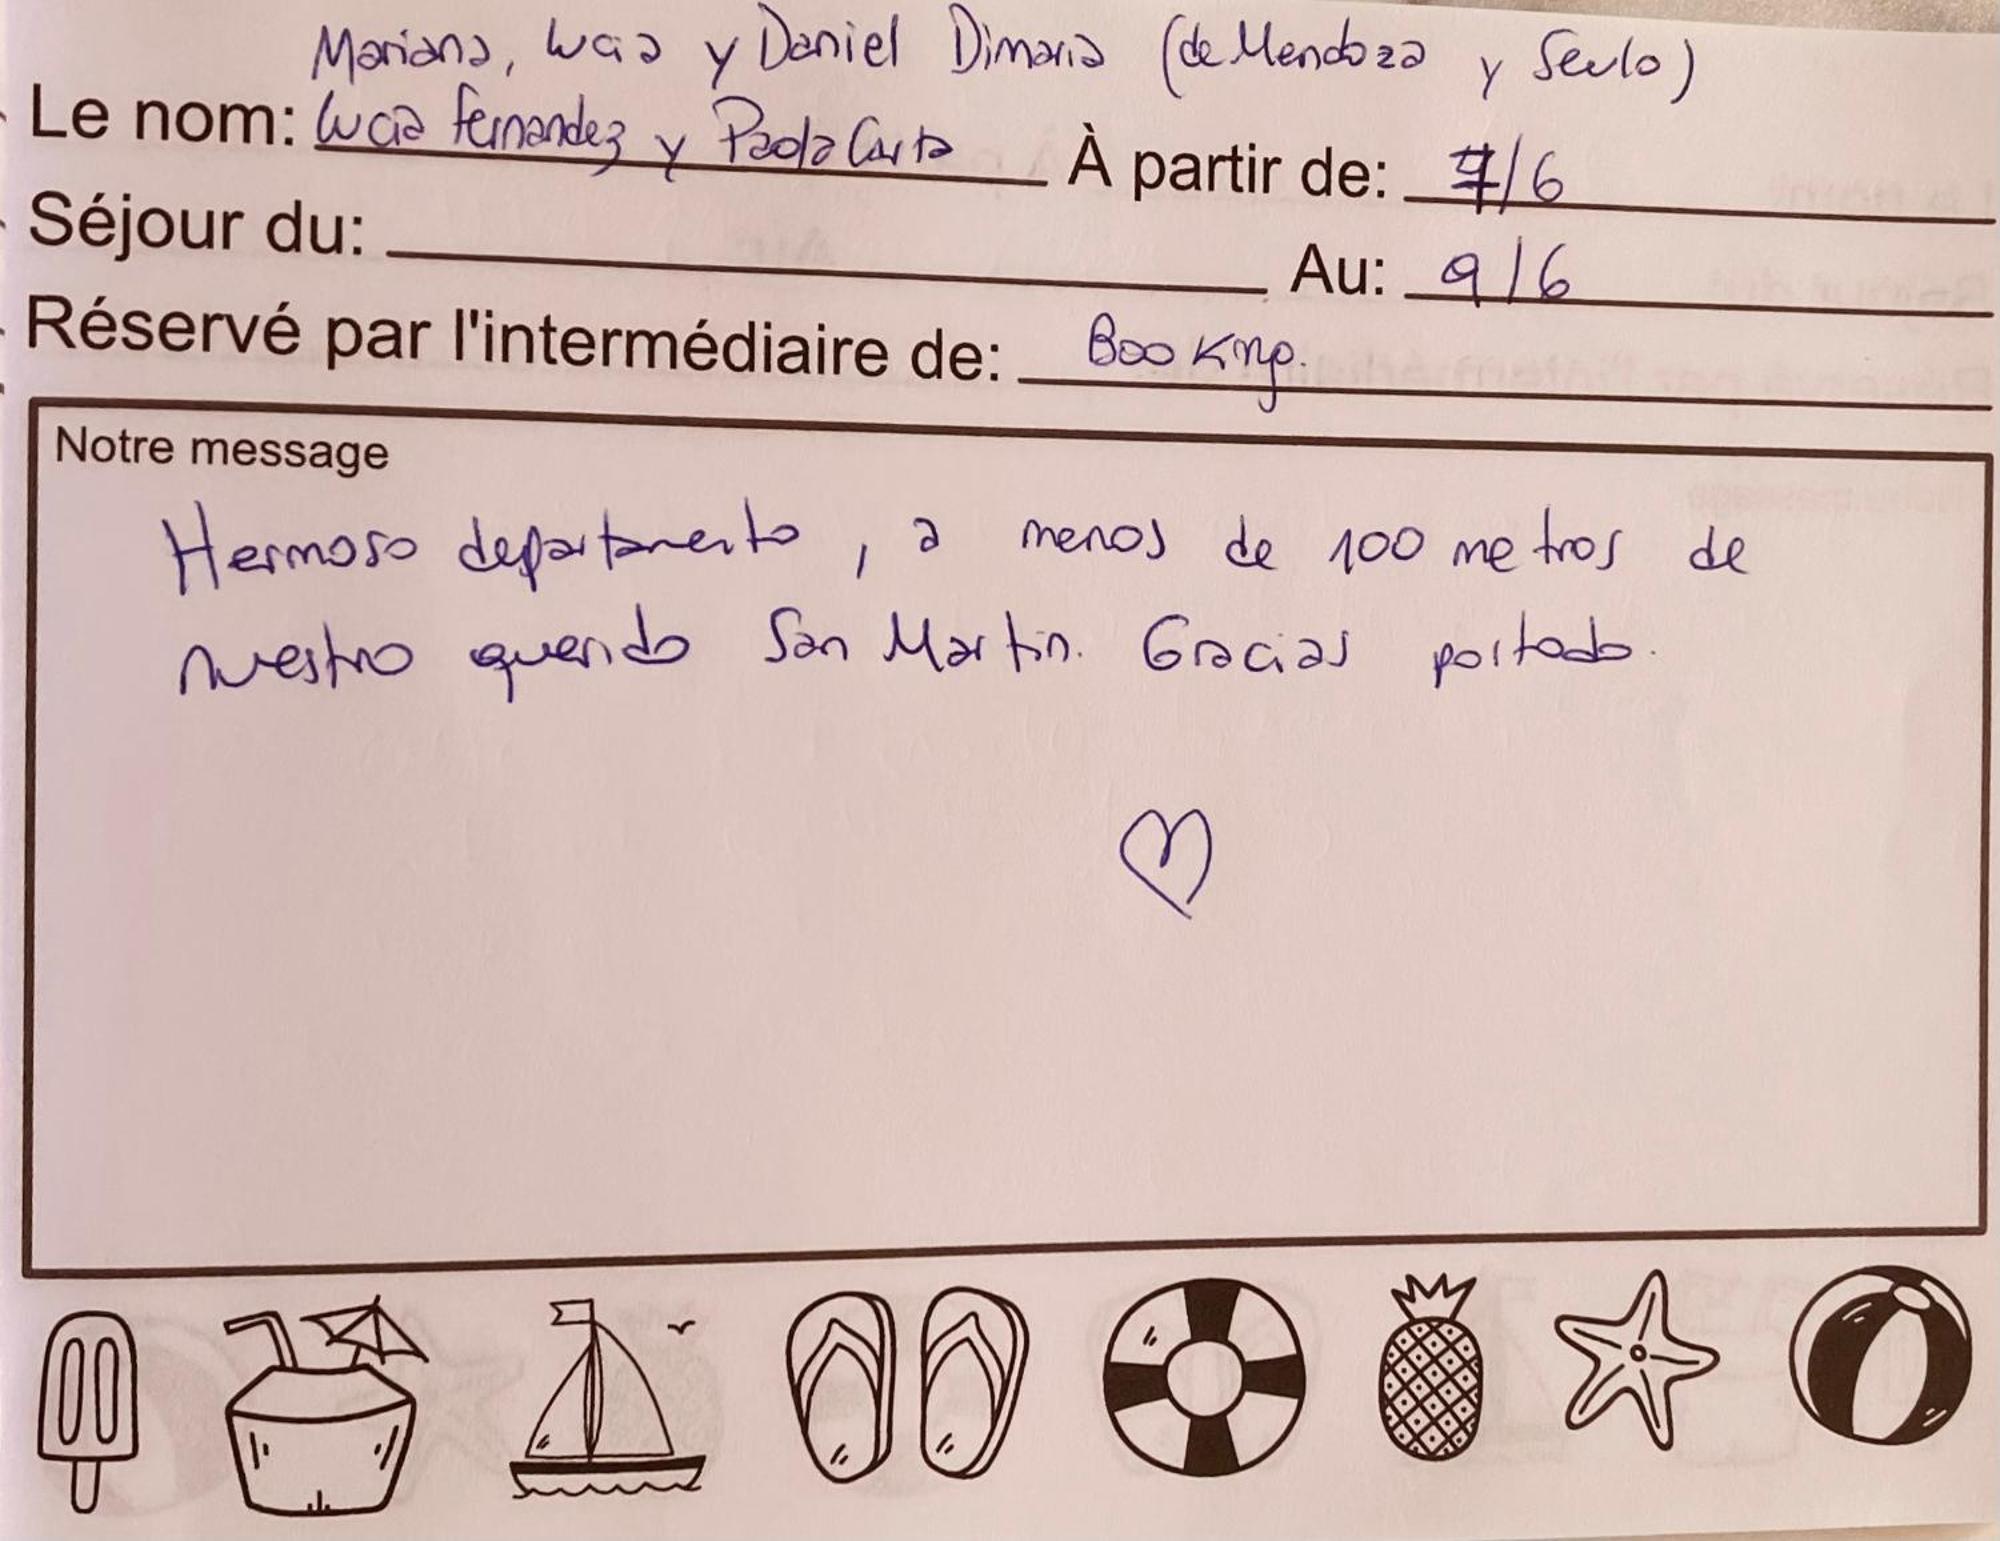 Mariana, Lucia y Daniel Dimaria (de Mendoza y Seulo)
Le nom: Lucia Fernandez y Paola Carta À partir de: 7/6
Séjour du: Au: 9/6
Réservé par l'intermédiaire de: Booking.
Notre message
Hermoso departamento, a menos de 100 metros de
nuestro querido San Martin. Gracias portodo.